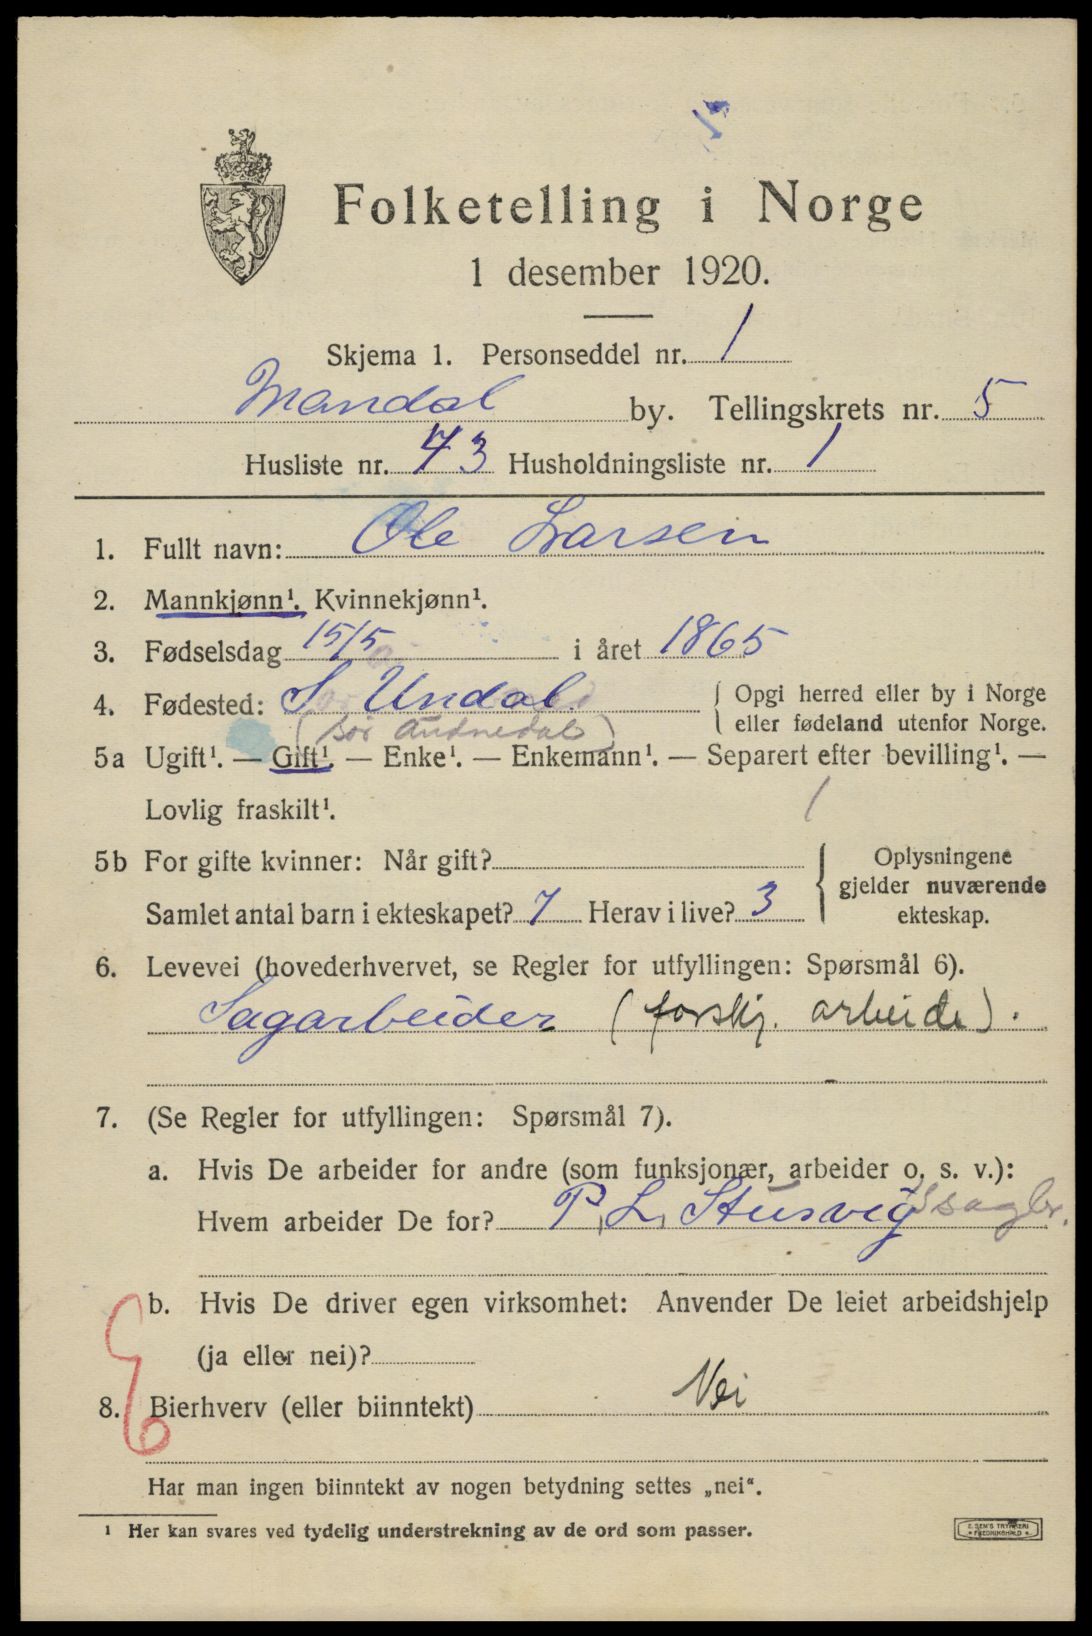 Folketelling i Norge
1 desember 1920.
Skjema 1. Personseddel nr. 1
Mandal by. Tellingskrets nr. 5
Husliste nr. 73 Husholdningsliste nr. 1
1. Fullt navn: Ole Larsen
2. Mannkjønn¹. Kvinnekjønn¹.
3. Fødselsdag 15/5 i året 1865
4. Fødested: S. Undal. Opgi herred eller by i Norge
eller fødeland utenfor Norge.
(Sør Audnedal)
5a Ugift¹. — Gift¹. — Enke¹. — Enkemann¹. — Separert efter bevilling¹. —
Lovlig fraskilt¹.
5b For gifte kvinner: Når gift? Oplysningene
gjelder nuværende
Samlet antal barn i ekteskapet? 7 Herav i live? 3 ekteskap.
6. Levevei (hovederhvervet, se Regler for utfyllingen: Spørsmål 6).
Sagarbeider (forskj. arbeide).
7. (Se Regler for utfyllingen: Spørsmål 7).
a. Hvis De arbeider for andre (som funksjonær, arbeider o. s. v.):
Hvem arbeider De for? P. L. Stusvig sagbr.
b. Hvis De driver egen virksomhet: Anvender De leiet arbeidshjelp
(ja eller nei)?
8. Bierhverv (eller biinntekt) Nei
Har man ingen biinntekt av nogen betydning settes „nei“.
¹ Her kan svares ved tydelig understrekning av de ord som passer.